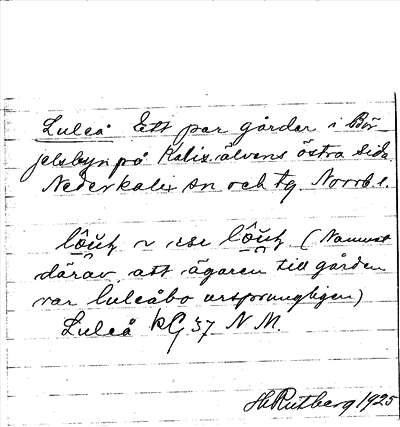 Luleå Ett par gårdar i Bör-
jelsbyn på Kalix älvens östra sida
Nederkalix sn och tg. Norrb. l.
(Namnet
därav, att ägaren till gården
var luleåbo ursprungligen)
Luleå kG 37 N M.
H Rutberg 1925